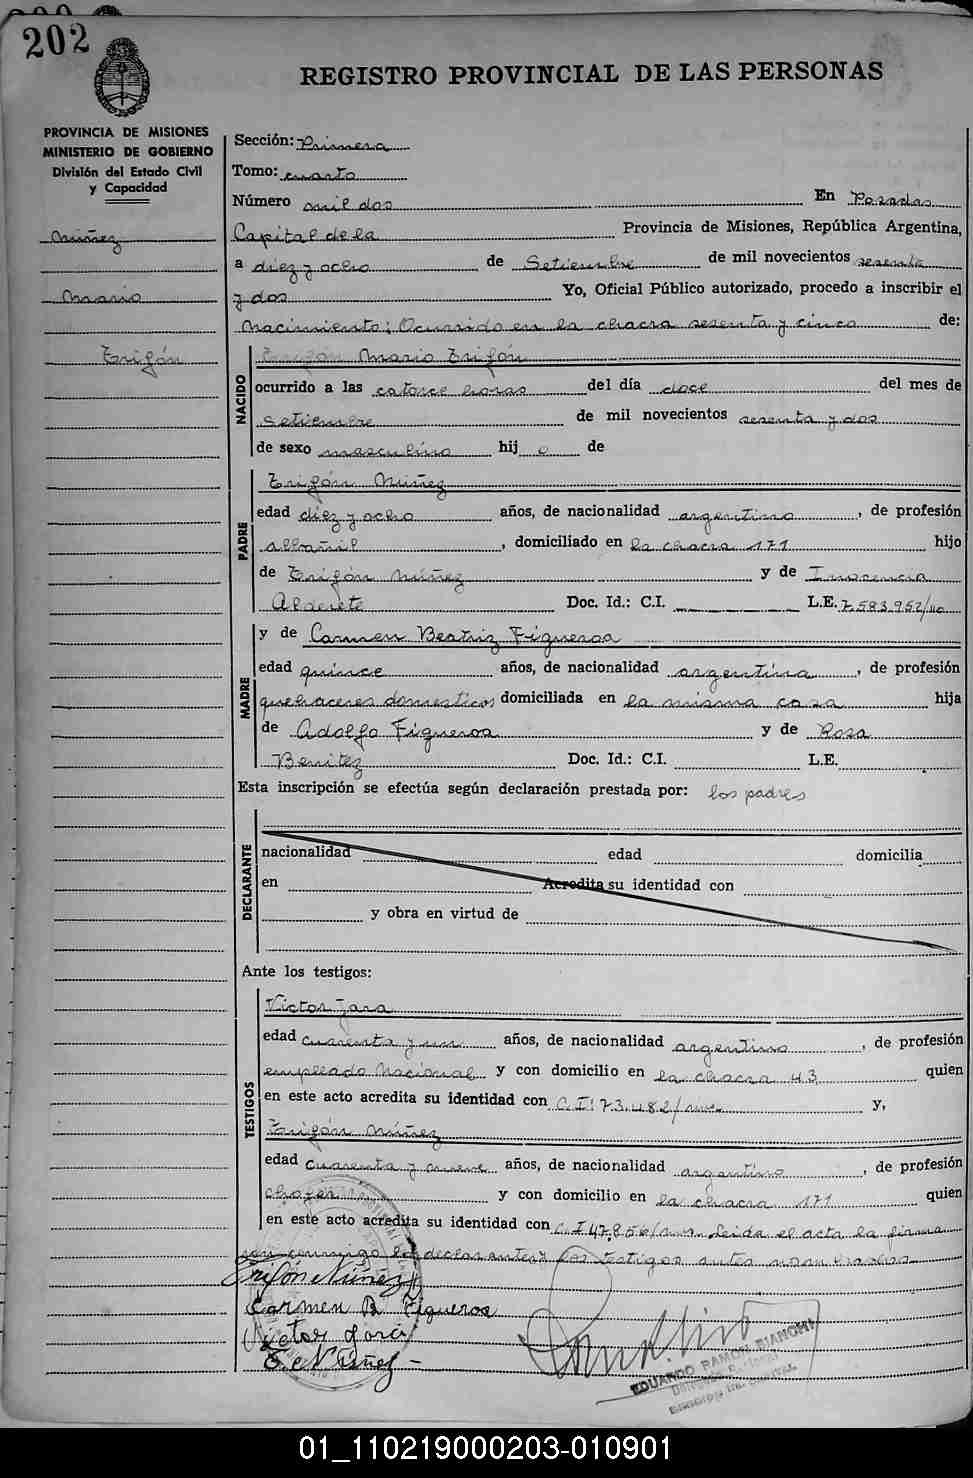 202
REGISTRO PROVINCIAL DE LAS PERSONAS
PROVINCIA DE MISIONES
MINISTERIO DE GOBIERNO
División del Estado Civil
y Capacidad
Núñez
Mario
Trifón
Sección: Primera
Tomo: cuarto
Número mil dos En Posadas
Capital de la Provincia de Misiones, República Argentina,
a diez y ocho de Setiembre de mil novecientos sesenta
y dos Yo, Oficial Público autorizado, procedo a inscribir el
Nacimiento: Ocurrido en la chacra sesenta y cinco de:
NACIDO
Mario Trifón
ocurrido a las catorce horas del día doce del mes de
Setiembre de mil novecientos sesenta y dos
de sexo masculino hij o de
PADRE
Trifón Núñez
edad diez y ocho años, de nacionalidad argentino, de profesión
albañil, domiciliado en la chacra 171 hijo
de Trifón Núñez y de Inocencia
Alderete Doc. Id.: C.I. L.E. 7.583.952/
MADRE
y de Carmen Beatriz Figueroa
edad quince años, de nacionalidad argentina, de profesión
quehaceres domesticos domiciliada en la misma casa hija
de Adolfo Figueroa y de Rosa
Benitez Doc. Id.: C.I. L.E.
Esta inscripción se efectúa según declaración prestada por: los padres
DECLARANTE
nacionalidad edad domicilia
en Acredita su identidad con
y obra en virtud de
Ante los testigos:
TESTIGOS
Victor Jara
edad cuarenta y un años, de nacionalidad argentino, de profesión
empleado Nacional y con domicilio en la chacra 43 quien
en este acto acredita su identidad con C.I: 73.482/ y,
Trifón Núñez
edad cuarenta y nueve años, de nacionalidad argentino, de profesión
chofer y con domicilio en la chacra 171 quien
en este acto acredita su identidad con C.I 47.856/ Leida el acta la firma
con conmigo los declarantes y los testigos antes nombrados
Trifón Núñez
Carmen B Figueroa
Victor Jara
T. Núñez
EDUARDO RAMON BIANCHI
01_110219000203-010901